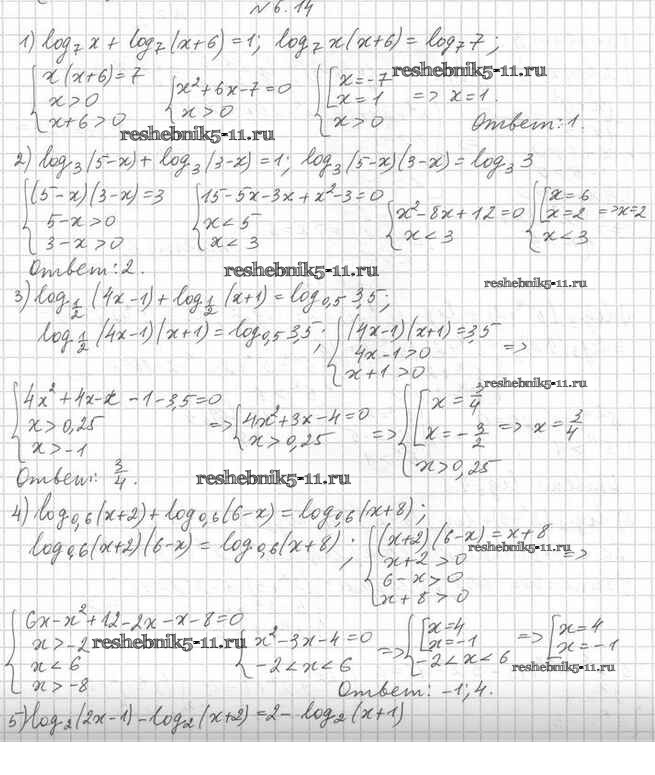 N 6.14
1) log₇ x + log₇ (x+6) = 1; log₇ x(x+6) = log₇ 7;
{ x(x+6)=7 { x²+6x-7=0 { [ x=-7
x>0 x>0 x=1 => x=1.
x+6>0 x>0 Ответ: 1.
reshebnik5-11.ru
reshebnik5-11.ru
2) log₃ (5-x) + log₃ (3-x) = 1; log₃ (5-x)(3-x) = log₃ 3
{ (5-x)(3-x)=3 { 15-5x-3x+x²-3=0 { x²-8x+12=0 { [ x=6
5-x>0 x<5 x<3 x=2 => x=2
3-x>0 x<3 x<3
Ответ: 2.
reshebnik5-11.ru
reshebnik5-11.ru
3) log_{1/2} (4x-1) + log_{1/2} (x+1) = log_{0,5} 3,5;
log_{1/2} (4x-1)(x+1) = log_{0,5} 3,5; { (4x-1)(x+1)=3,5
4x-1>0 =>
x+1>0
reshebnik5-11.ru
{ 4x²+4x-x-1-3,5=0
x>0,25 => { 4x²+3x-4=0 => { [ x=3/4
x>-1 x>0,25 x=-3/2 => x=3/4
x>0,25
Ответ: 3/4.
reshebnik5-11.ru
4) log_{0,6} (x+2) + log_{0,6} (6-x) = log_{0,6} (x+8);
log_{0,6} (x+2)(6-x) = log_{0,6} (x+8); { (x+2)(6-x)=x+8
x+2>0 =>
6-x>0
x+8>0
reshebnik5-11.ru
{ 6x-x²+12-2x-x-8=0
x>-2 { x²-3x-4=0 => { [ x=4 => [ x=4
x<6 -2<x<6 x=-1 x=-1
x>-8 -2<x<6
reshebnik5-11.ru
reshebnik5-11.ru
Ответ: -1; 4.
5) log₂ (2x-1) - log₂ (x+2) = 2 - log₂ (x+1)